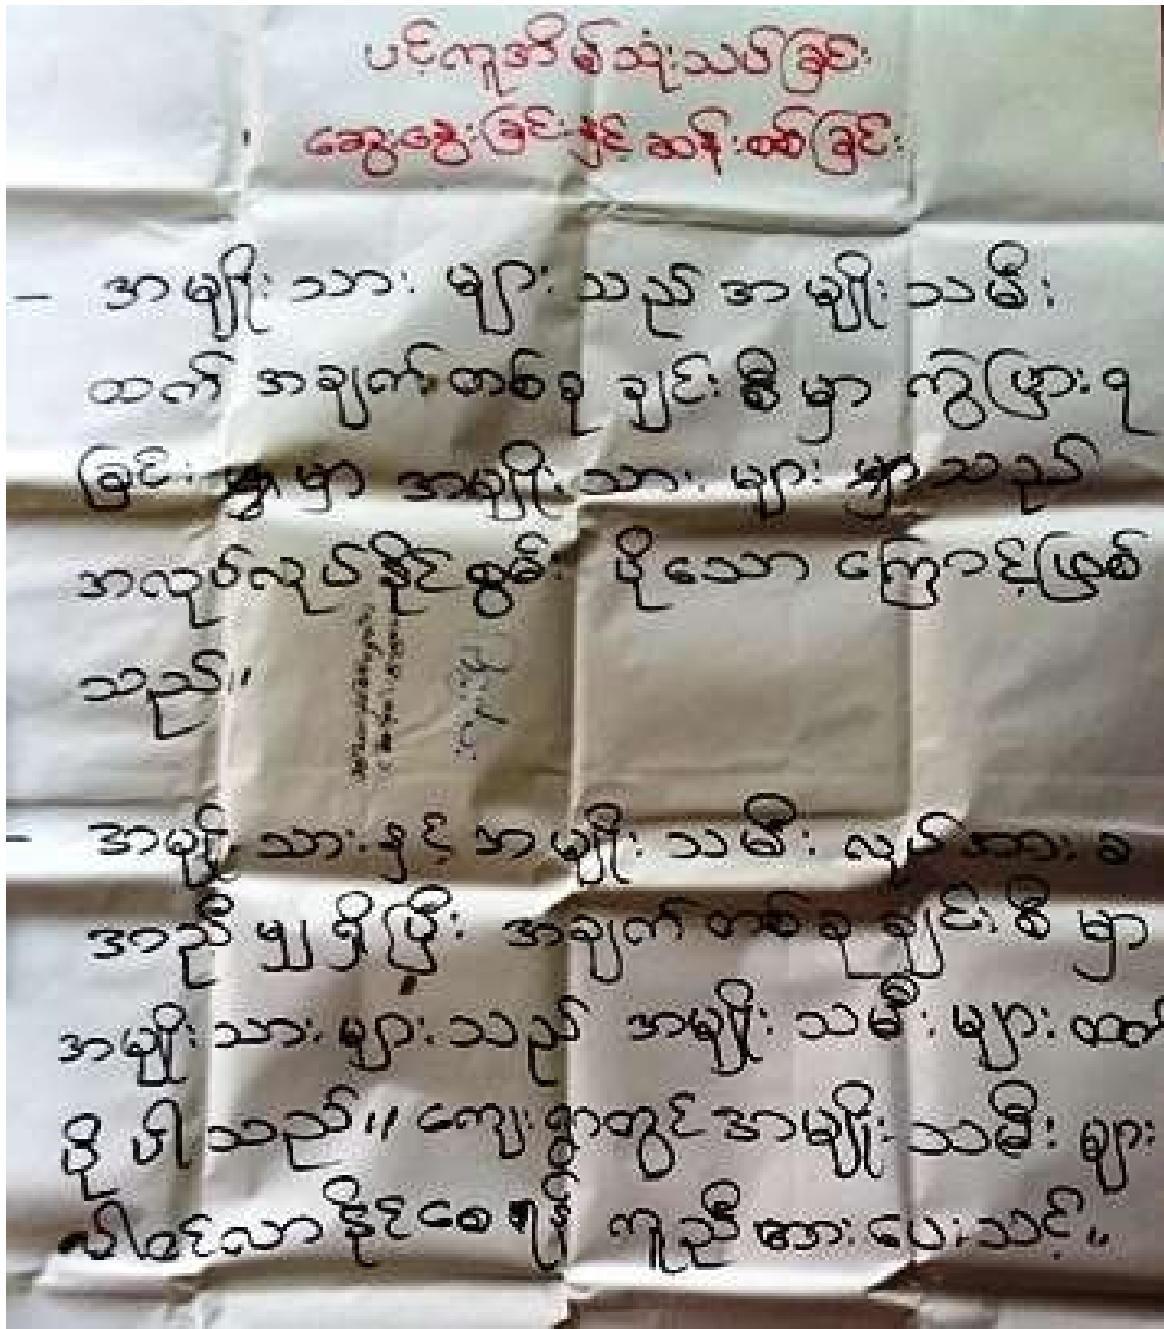 ပင့်ကူအိမ်သုံးသပ်ခြင်း
ဆွေးနွေးခြင်းနှင့် ဆန်းစစ်ခြင်း
- အမျိုးသား များ သည် အမျိုးသမီး
ထက် အချက်တစ်ခု ချင်းစီ မှာ ကွဲပြားရ
ခြင်း မှာ အမျိုးသား များ သည်
အလုပ်လုပ်နိုင်စွမ်း ပိုသော ကြောင့်ဖြစ်
သည်။
- အမျိုးသားနှင့် အမျိုးသမီး လုပ်အားခ
အညီမျှရှိပြီး အချက်တစ်ခုချင်းစီ မှာ
အမျိုးသားများသည် အမျိုးသမီးများထက်
ပိုပါသည်။ ကျေးရွာတွင် အမျိုးသမီးများ
ပါဝင်လာနိုင်စေရန် ကူညီအားပေးသင့်။